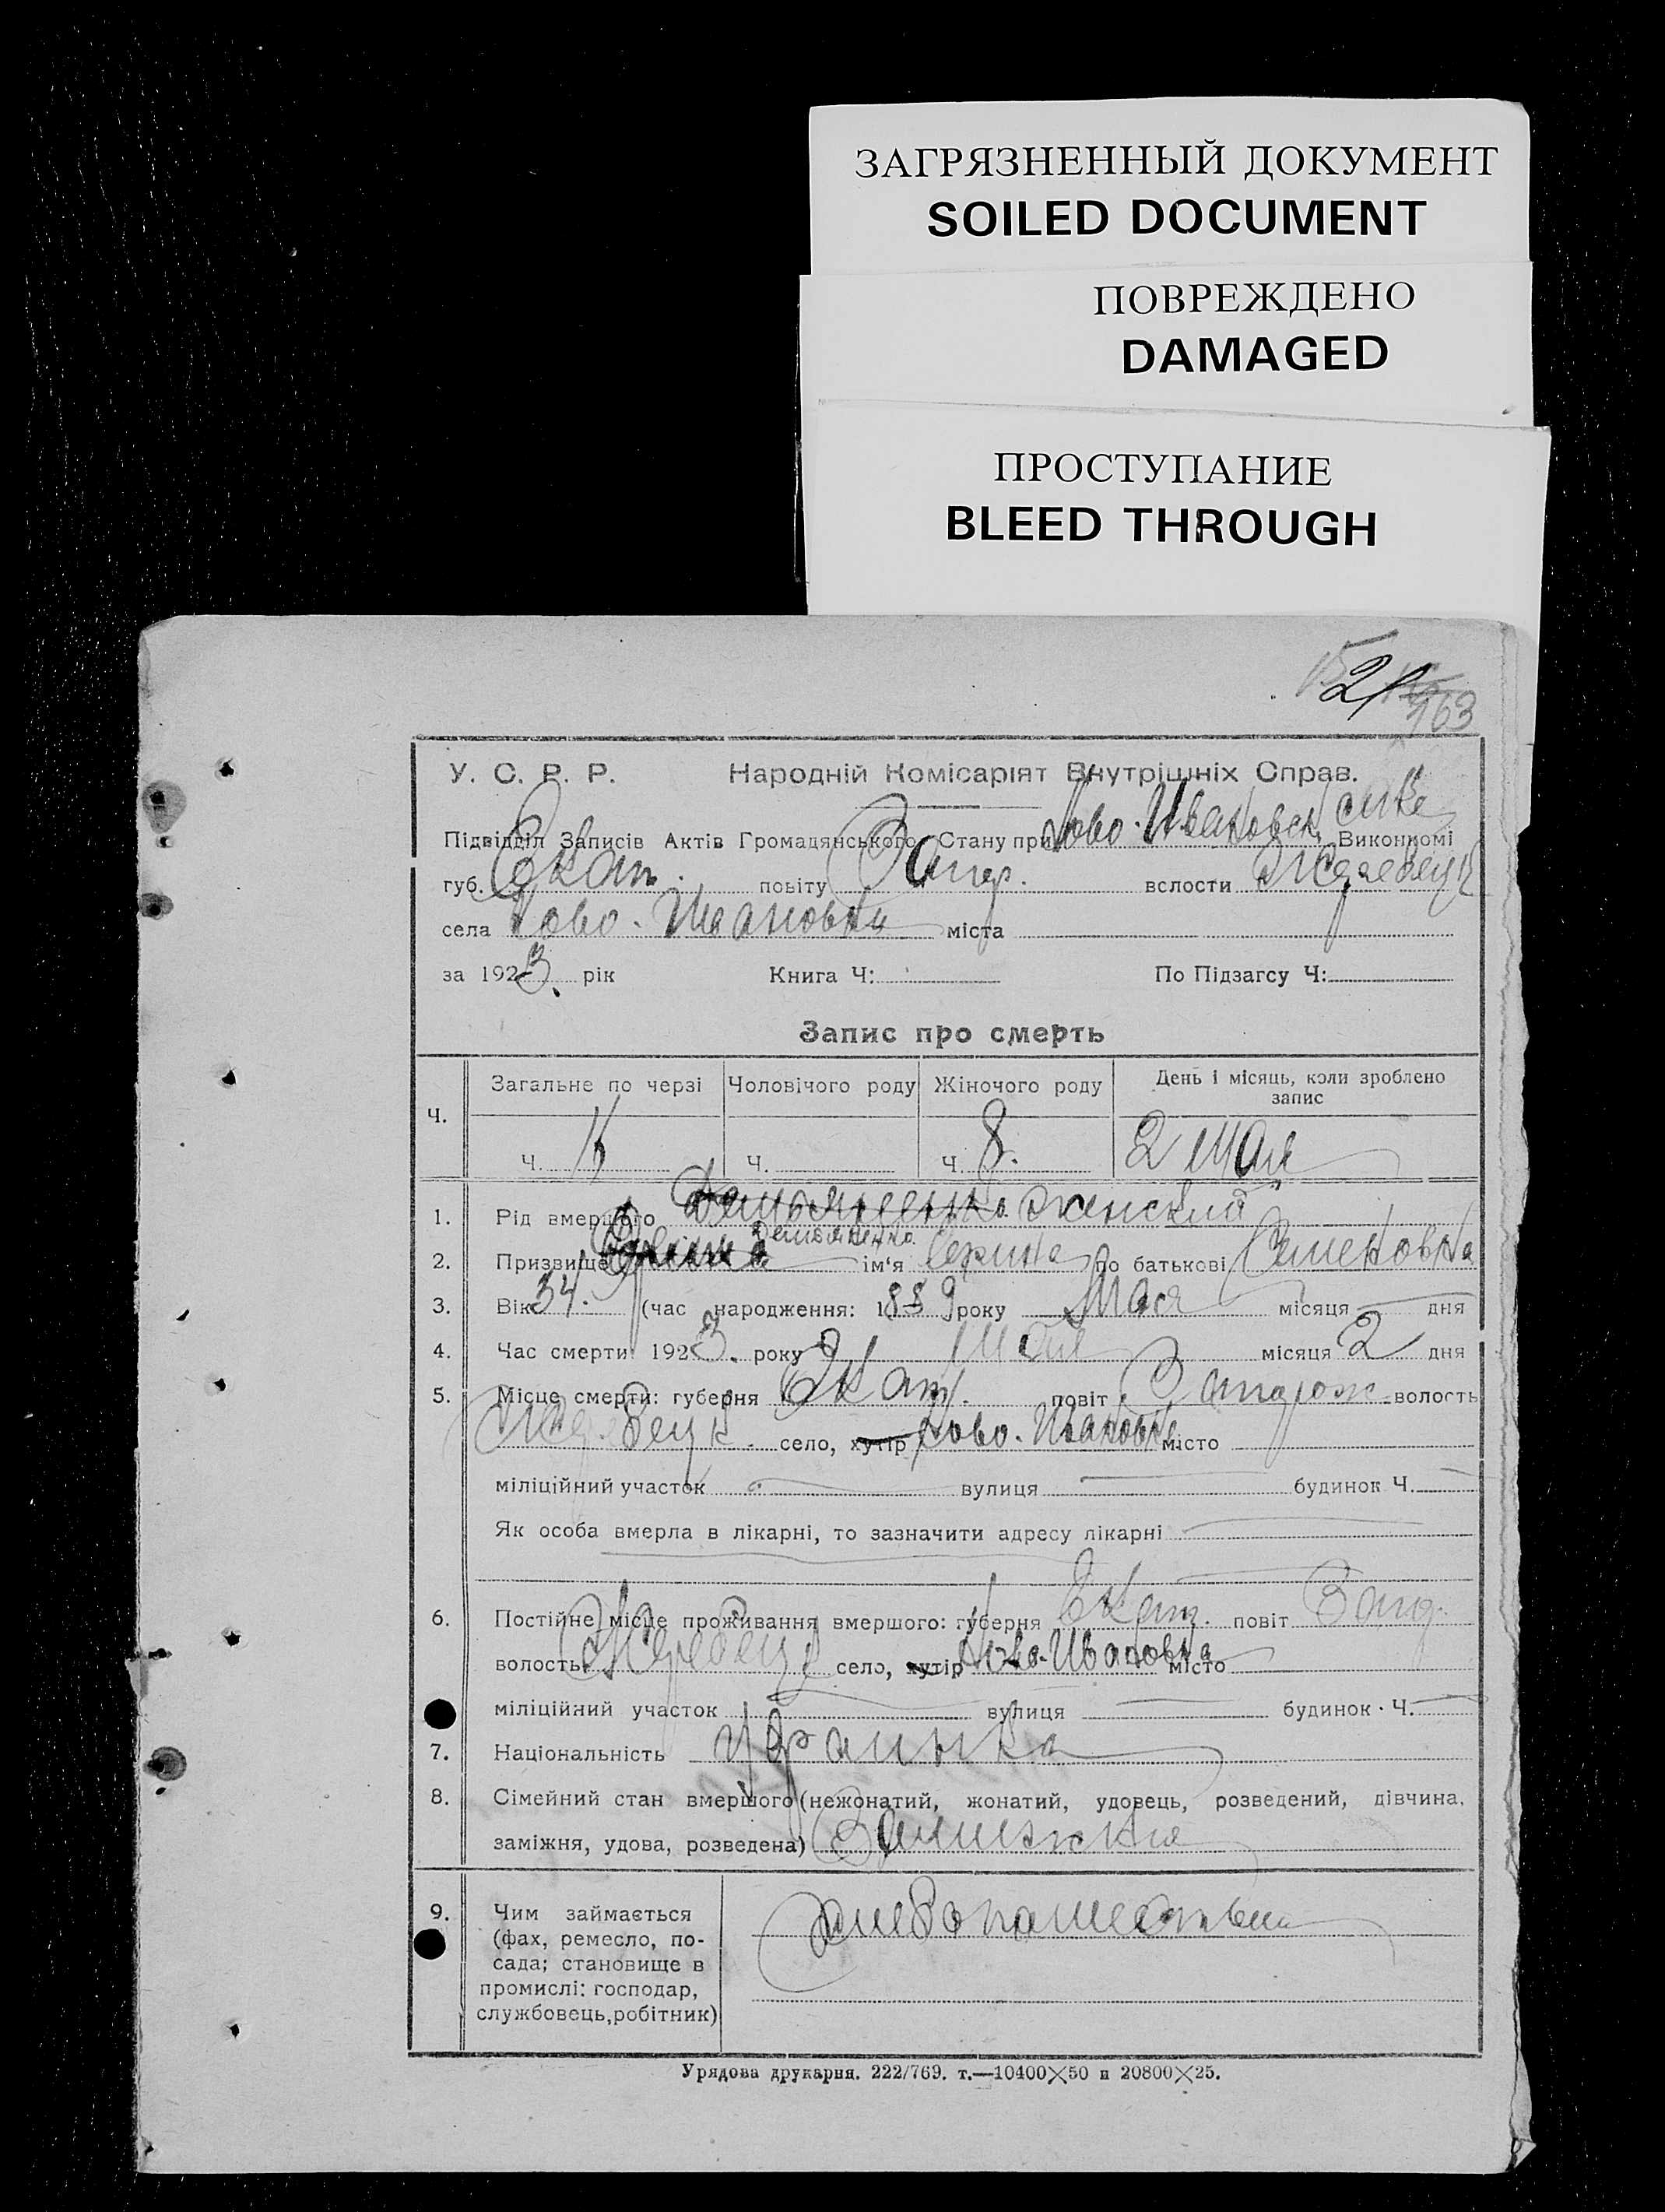 ЗАГРЯЗНЕННЫЙ ДОКУМЕНТ
SOILED DOCUMENT
ПОВРЕЖДЕНО
DAMAGED
ПРОСТУПАНИЕ
BLEED THROUGH
21
163
У. С. Р. Р. Народній Комісаріят Внутрішніх Справ.
Підвідділ Записів Актів Громадянського Стану при Ново-Ивановск. Виконкомі
губ. Екат. повіту Запор. волости Жеребецк
села Ново-Ивановки міста
за 1923 рік Книга Ч: По Підзагсу Ч:
Запис про смерть
Ч. Загальне по черзі Чоловічого роду Жіночого роду День і місяць, коли зроблено
запис
Ч. Ч. Ч. 8. 2 мая
1. Рід вмершого Демьяненко женский
2. Призвище Демьяненко ім'я по батькові Семеновна
3. Вік 34. (час народження: 1889 року Мая місяця дня
4. Час смерти: 1923. року Мая місяця 2 дня
5. Місце смерти: губерня Екат. повіт Запорож. волость
Жеребецк. село, хутір Ново-Ивановка місто
міліційний участок вулиця будинок Ч.
Як особа вмерла в лікарні, то зазначити адресу лікарні
6. Постійне місце проживання вмершого: губерня Екат. повіт Запор.
волость Жеребецк село, хутір Ново-Ивановка місто
міліційний участок вулиця будинок Ч.
7. Національність Украинка
8. Сімейний стан вмершого (нежонатий, жонатий, удовець, розведений, дівчина,
заміжня, удова, розведена) Замужняя
9. Чим займається
(фах, ремесло, по-
сада; становище в
промислі: господар,
службовець, робітник)
Хлебопашеством
Урядова друкарня. 222/769. т.—10400×50 и 20800×25.